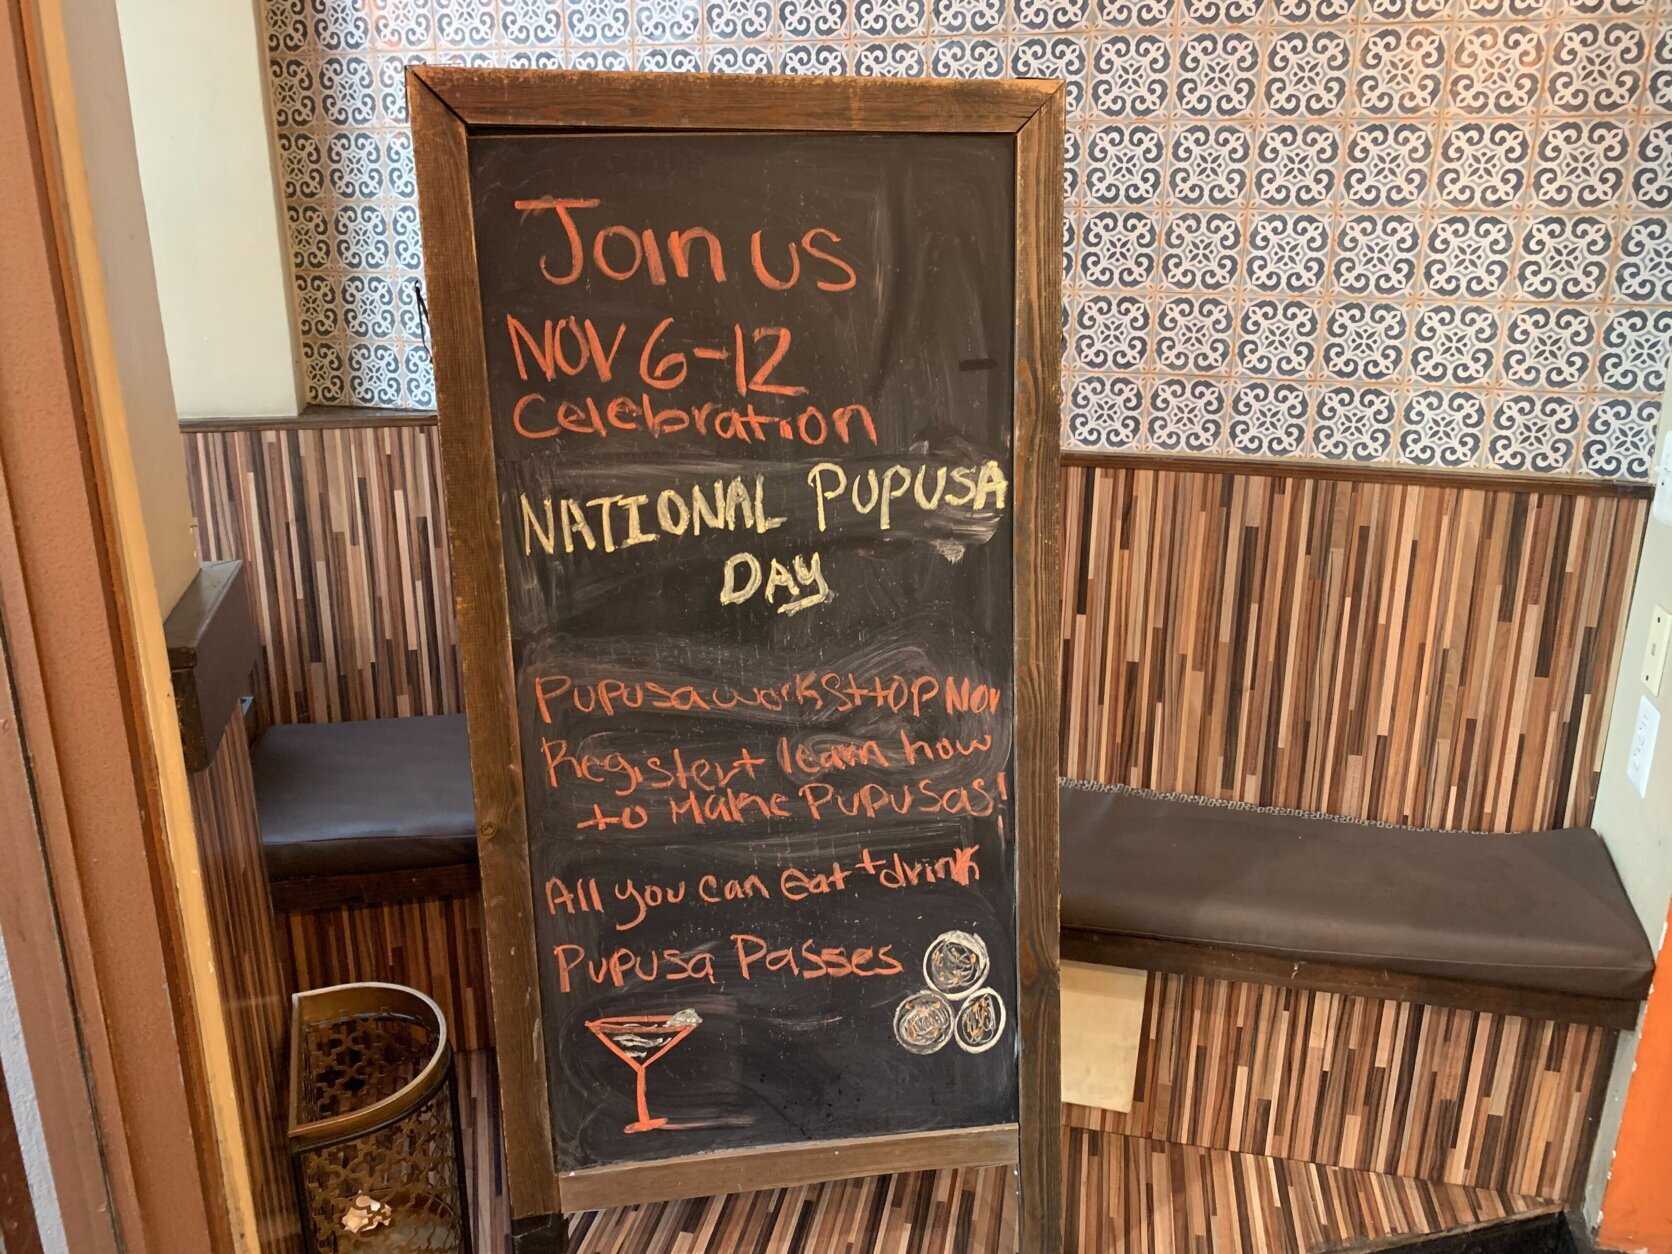 Join us
NOV 6-12
Celebration
NATIONAL PUPUSA
DAY
Pupusa workSHOP Nov
Register + learn how
to Make Pupusas!
All you can eat + drink
Pupusa Passes